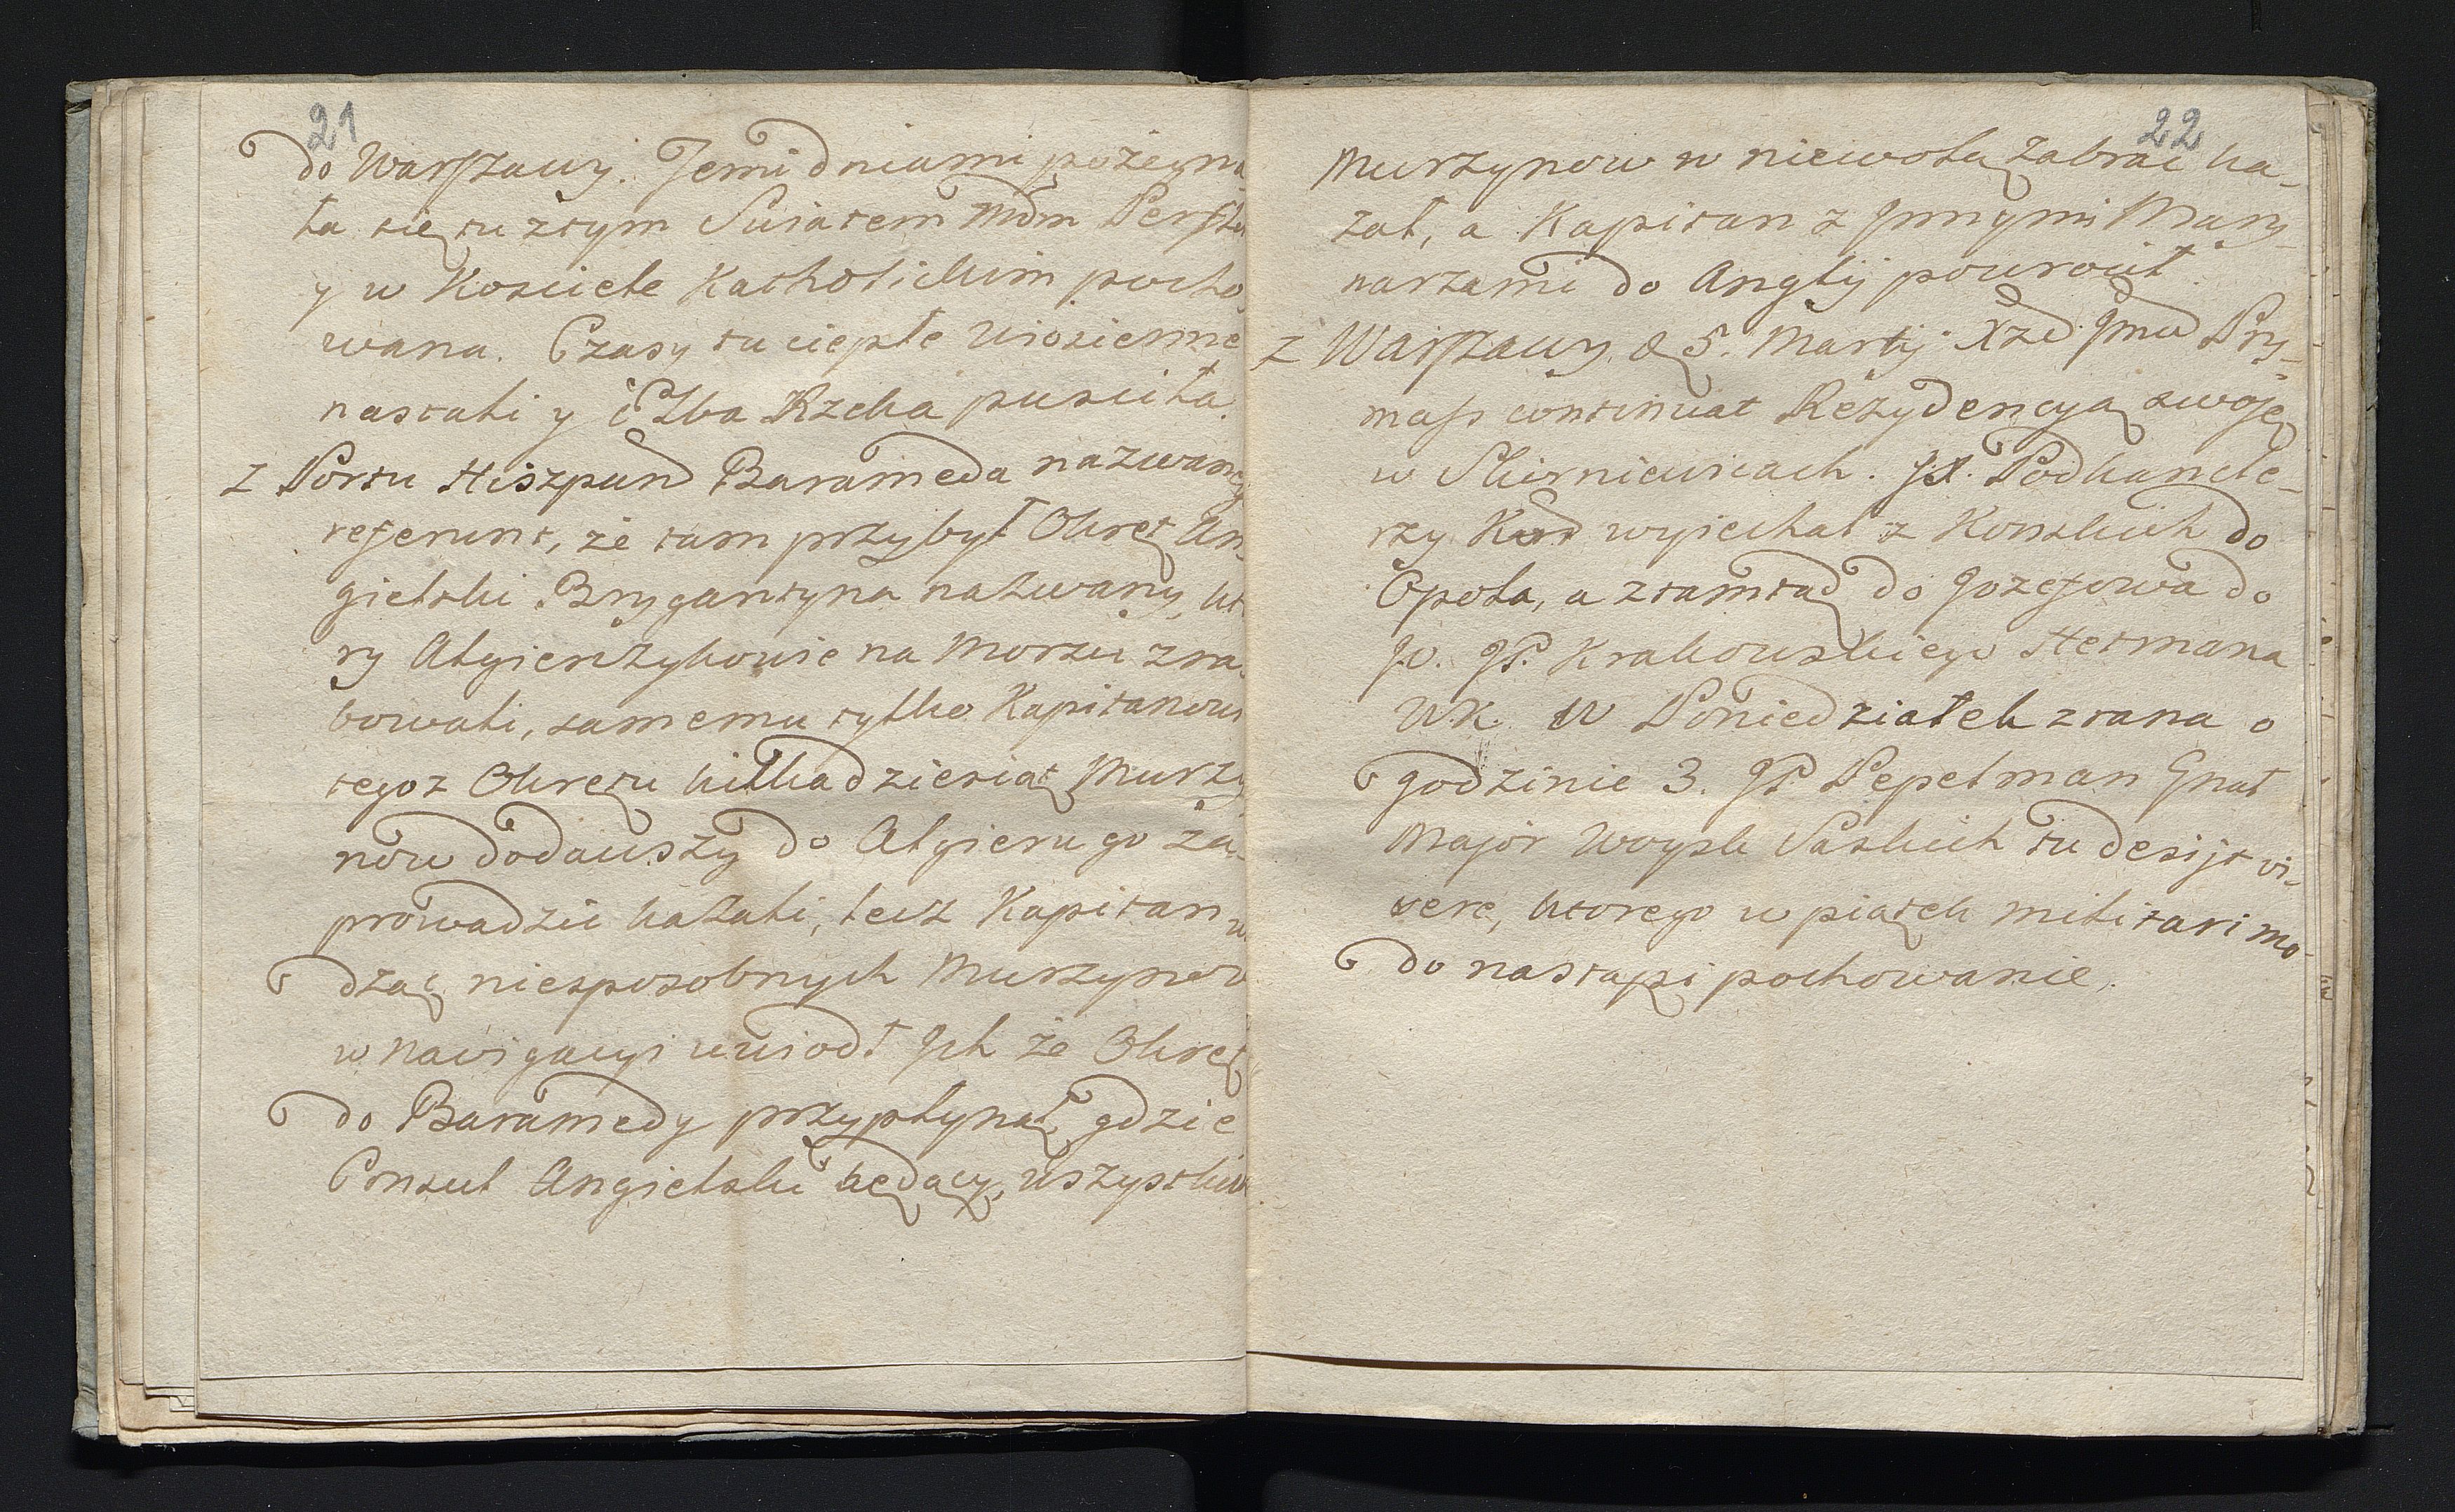 21
do Warszawy. Temi dniami pożegna-
ła się tu z tym Swiatem Mdm
y w Kosciele Katholickim pocho
wana. Czasy tu ciepłe wiosienne
nastali y Elba Rzeka pusciła.
Z Portu Hiszpan Barameda nazwany
referunt, że tam przybył Okręt An-
gielski Brygantyna nazwany, kt
ry Algierczykowie na Morzu zra-
bowali, samemu tylko Kapitanowi
tegoz Okrętu kilkadziesiąt Murzy
nów dodawszy do Algieru go za-
prowadzic kazali, lecz Kapitan w
dząc niesposobnych Murzynow
w nawigacyi uwiodł Jch że Okręt
do Baramedy przypłynął gdzie
Consul Angielski będący, wszystkich
22
Murzynow w niewolą zabrać ka-
zał, a Kapitan z Jnnymi Mary-
narzami do Anglij powrocił.
Z Warszawy d 5. Martij Xże Jmć Pry-
mass continuat Rezydencyą swoję
w Skierniewicach. JX. Podkancle-
rzy Kor wyiechał z Konskich do
Opola, a ztamtąd do Jozefowa do
JW. JP. Krakowskiego Hetmana
WK. W Poniedziałek zrana o
godzinie 3. JP. Pepelman Gnał
Major Woysk Saskich tu desijt vi-
vere, ktorego w piątek militari mo-
do nastąpi pochowanie.